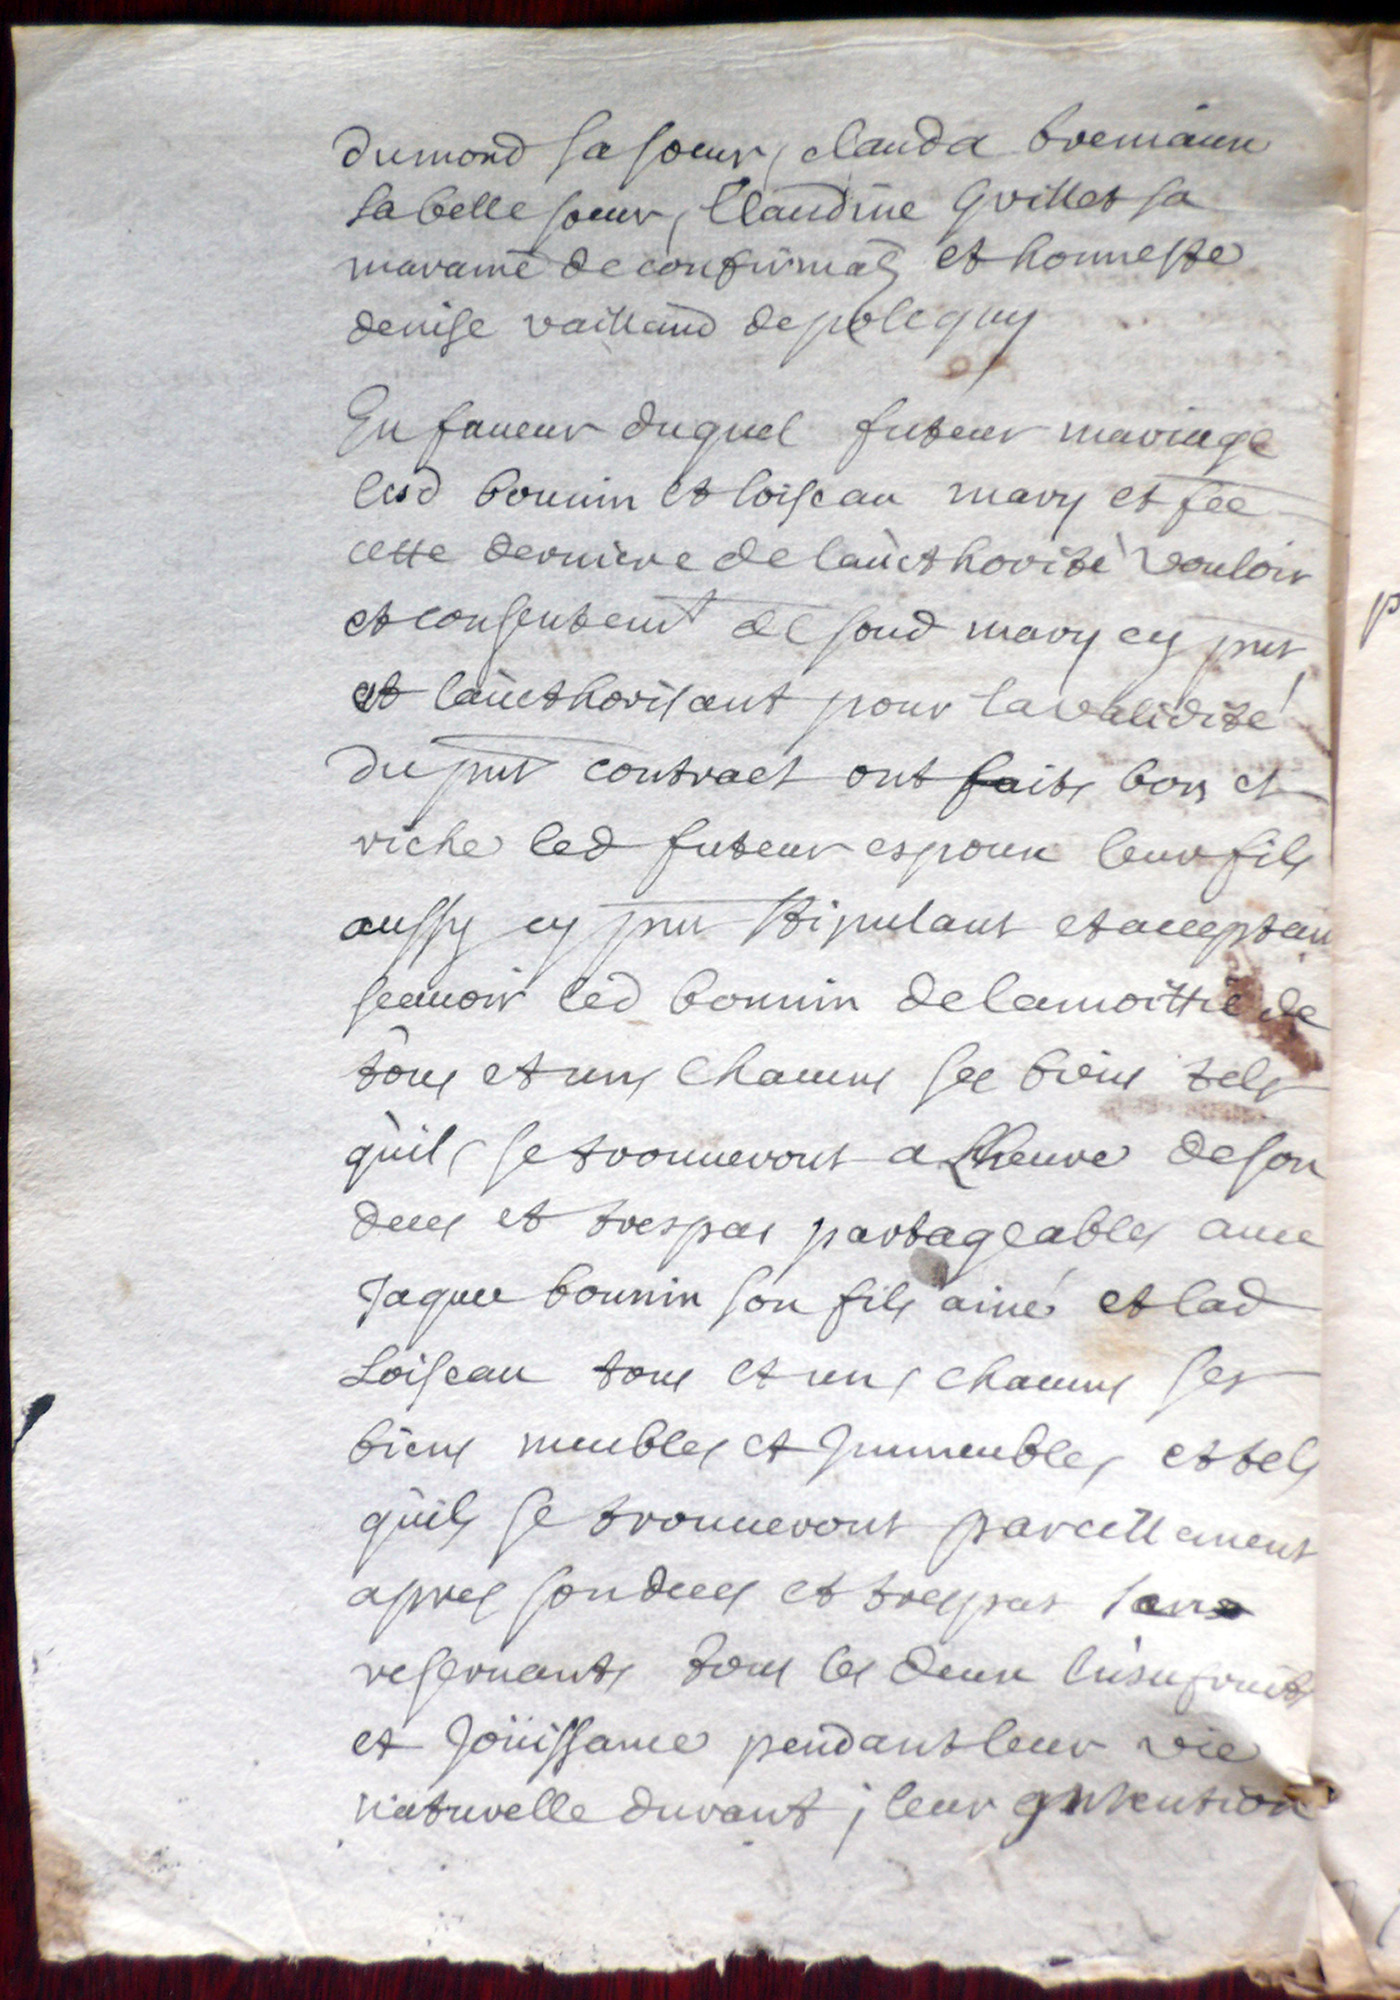 dumond sa soeur, clauda
sa belle soeur, Claudine Grillet sa
maraine de confirmaon et honneste
denise vailland de poligny
En faueur duquel futeur mariage
lesd bounin et loiseau mary et fee
cette derniere de laûcthorité vouloir
et consentemt de sond mary cy pnt
et laûcthorisant pour la validité
du pnt contract ont faits bon et
riche led futeur espoux leur fils
aussy cy pnt stipulant et acceptan
scauoir led bounin de la moittié de
tous et uns chacuns ses biens tels
qûils se trouueront a Lheure de son
deces et trespas partageables auec
Jaques bounin son fils ainé et lad
Loiseau tous et uns chacuns ses
biens meubles et Jmmeubles, et tels
qûils se trouueront pareillement
apres son deces et trespas
reseruants tous les deux lûsufruits
et Joüissance pendant leur vie
naturelle durant; leur jntention